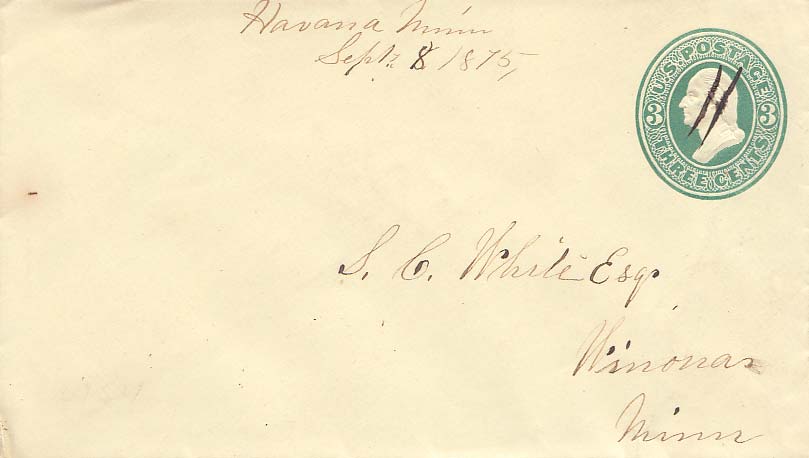 Havana Minn
Sept. 8 1875,
U.S. POSTAGE
3 3
THREE CENTS
S. C. White Esq
Winona
Minn